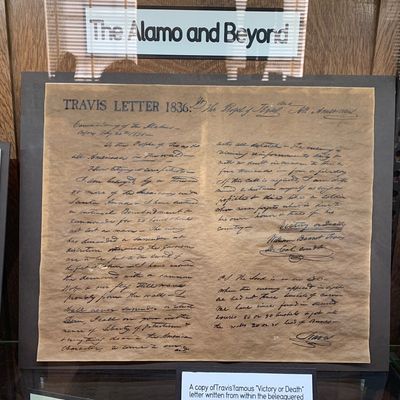 The Alamo and Beyond
TRAVIS LETTER 1836: To The People of Texas and All Americans
Commandancy of the Alamo
Bejar, Feby 24th 1836
To the People of Texas &
All Americans in the world
Fellow Citizens & compatriots
I am besieged, by a thousand
or more of the Mexicans under
Santa Anna - I have sustained
a continual Bombardment &
cannonade for 24 hours & have
not lost a man - The enemy
has demanded a surrender at
discretion, otherwise, the garrison
are to be put to the sword, if
the demand with a cannon
shot, & our flag still waves
proudly from the walls - I
shall never surrender or retreat
Then, I call on you in the
name of Liberty, of patriotism &
every thing dear to the American
character, to come to our
aid
with all dispatch - The enemy is
receiving reinforcements daily &
will no doubt increase to three or
four thousand in four or five days.
If this call is neglected, I am deter
mined to sustain myself as long as
possible & die like a soldier
who never forgets what is due to
his own honor & that of his
country
Victory or Death
William Barret Travis
Lt. Col. comdt
P.S. The Lord is on our side
When the enemy appeared in sight
we had not three bushels of corn
We have since found in deserted
houses 80 or 90 bushels & got into
the walls 20 or 30 head of Beeves
Travis
A copy of Travis' famous "Victory or Death"
letter written from within the beleaguered